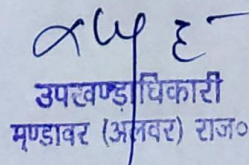 उपखण्डाधिकारी
मुण्डावर (अलवर) राज०